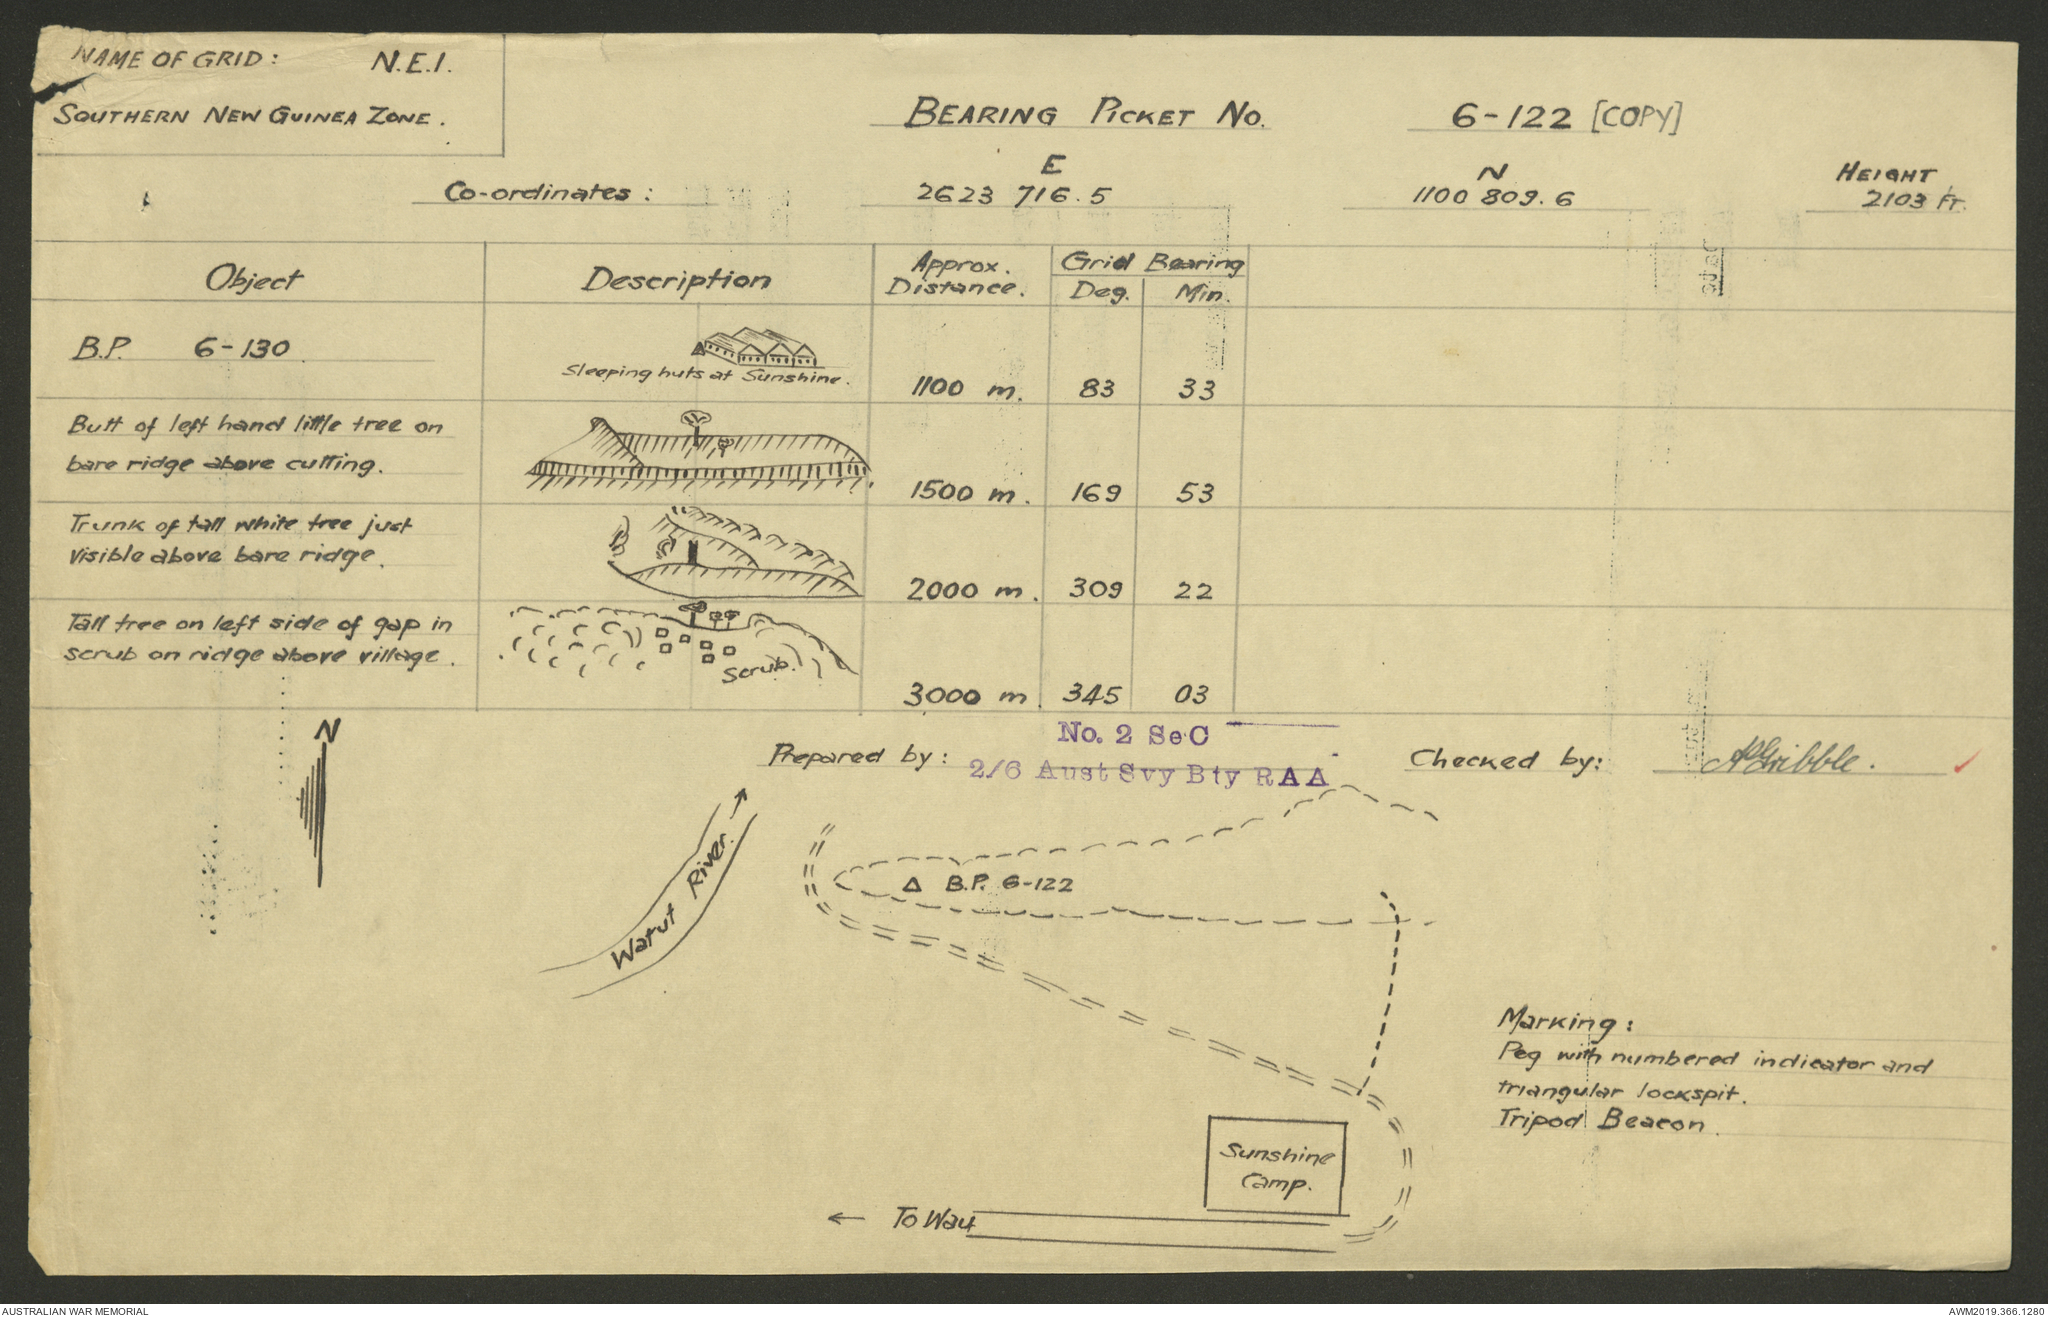 NAME OF GRID: N.E.I.
SOUTHERN NEW GUINEA ZONE.
BEARING PICKET No. 6-122 [COPY]
Co-ordinates: E 2623 716.5 N 1100 809.6 HEIGHT 2103 FT.
Object Description Approx. Distance. Grid Bearing
Deg. Min.
B.P. 6-130
Sleeping huts at Sunshine.
1100 m. 83 33
Butt of left hand little tree on
bare ridge above cutting.
1500 m. 169 53
Trunk of tall white tree just
visible above bare ridge.
2000 m. 309 22
Tall tree on left side of gap in
scrub on ridge above village.
Scrub.
3000 m. 345 03
N
Prepared by: No. 2 SeC
2/6 Aust Svy Bty RAA
Checked by: AGribble.
Watut River.
B.P. 6-122
Marking:
Peg with numbered indicator and
triangular lockspit.
Tripod Beacon.
Sunshine
Camp.
← To Wau
AUSTRALIAN WAR MEMORIAL
AWM2019.366.1280